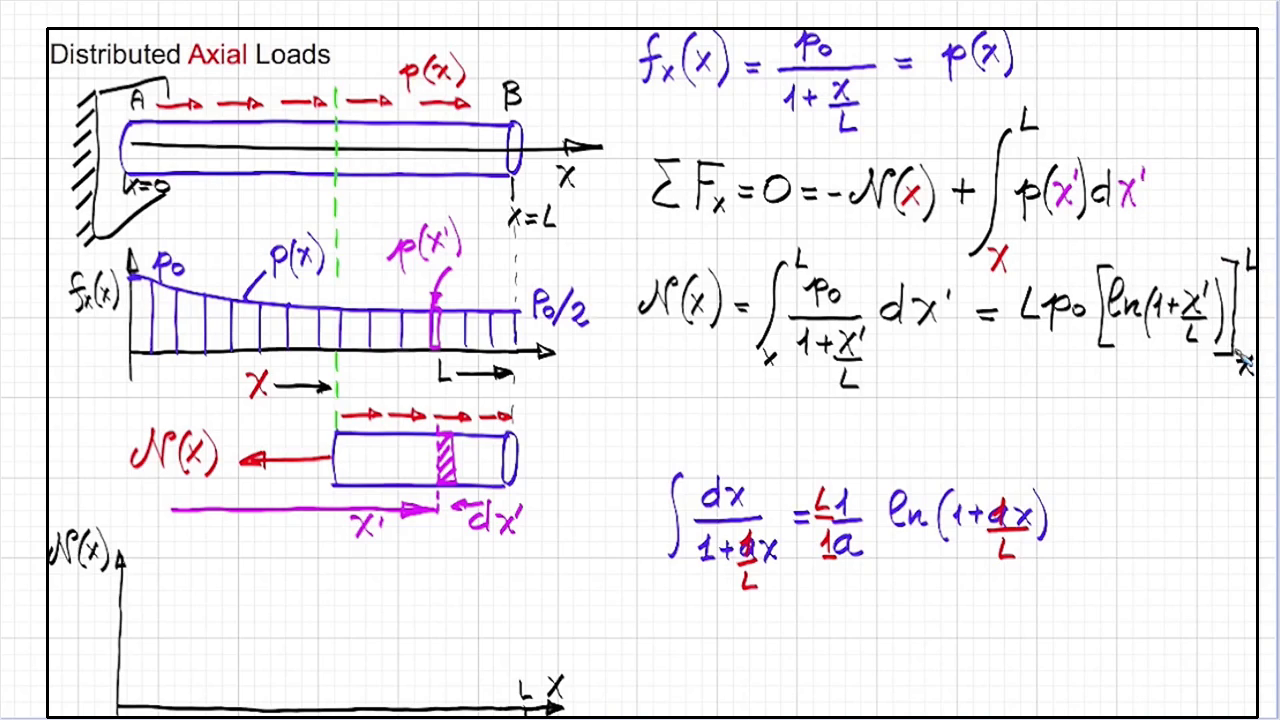 Distributed Axial Loads
p(x)
A
B
x=0
x
x=L
fₓ(x)
p₀
p(x)
p(x')
P₀/2
x
L
N(x)
x'
dx'
N(x)
L
x
fₓ(x) = p₀/(1+x/L) = p(x)
ΣFₓ = 0 = -N(x) + ∫ₓᴸ p(x')dx'
N(x) = ∫ₓᴸ p₀/(1+x'/L) dx' = Lp₀[ln(1+x'/L)]ₓᴸ
∫ dx/(1+1/L x) = L/1 1/a ln(1+1x/L)